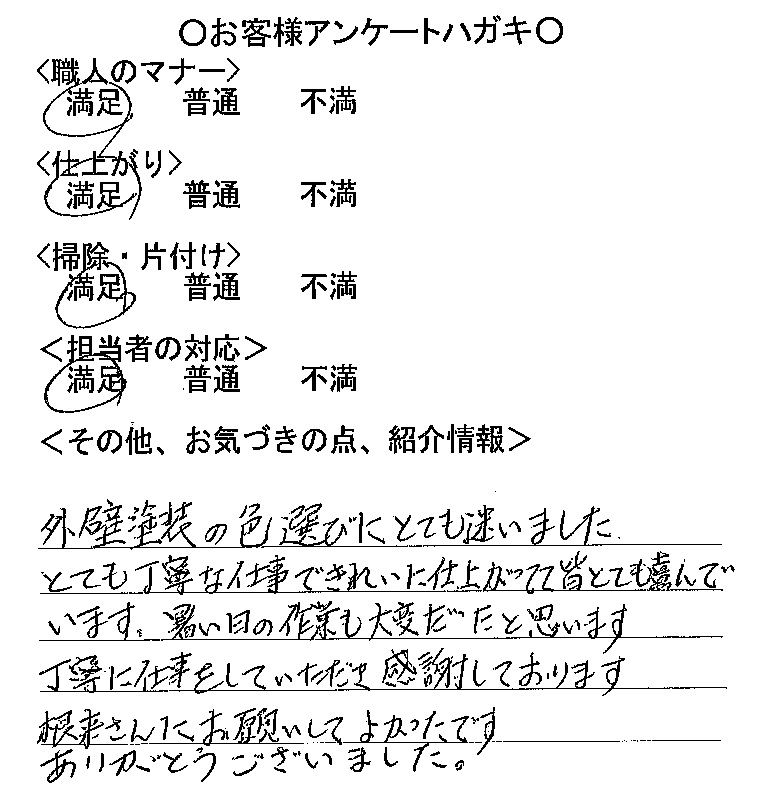 ○お客様アンケートハガキ○
<職人のマナー>
満足 普通 不満
<仕上がり>
満足 普通 不満
<掃除・片付け>
満足 普通 不満
<担当者の対応>
満足 普通 不満
<その他、お気づきの点、紹介情報>
外壁塗装の色選びにとても迷いました
とても丁寧な仕事できれいに仕上がってて皆とても喜んで
います。暑い日の作業も大変だったと思います
丁寧に仕事をしていただき感謝しております
根来さんにお願いしてよかったです
ありがとうございました。